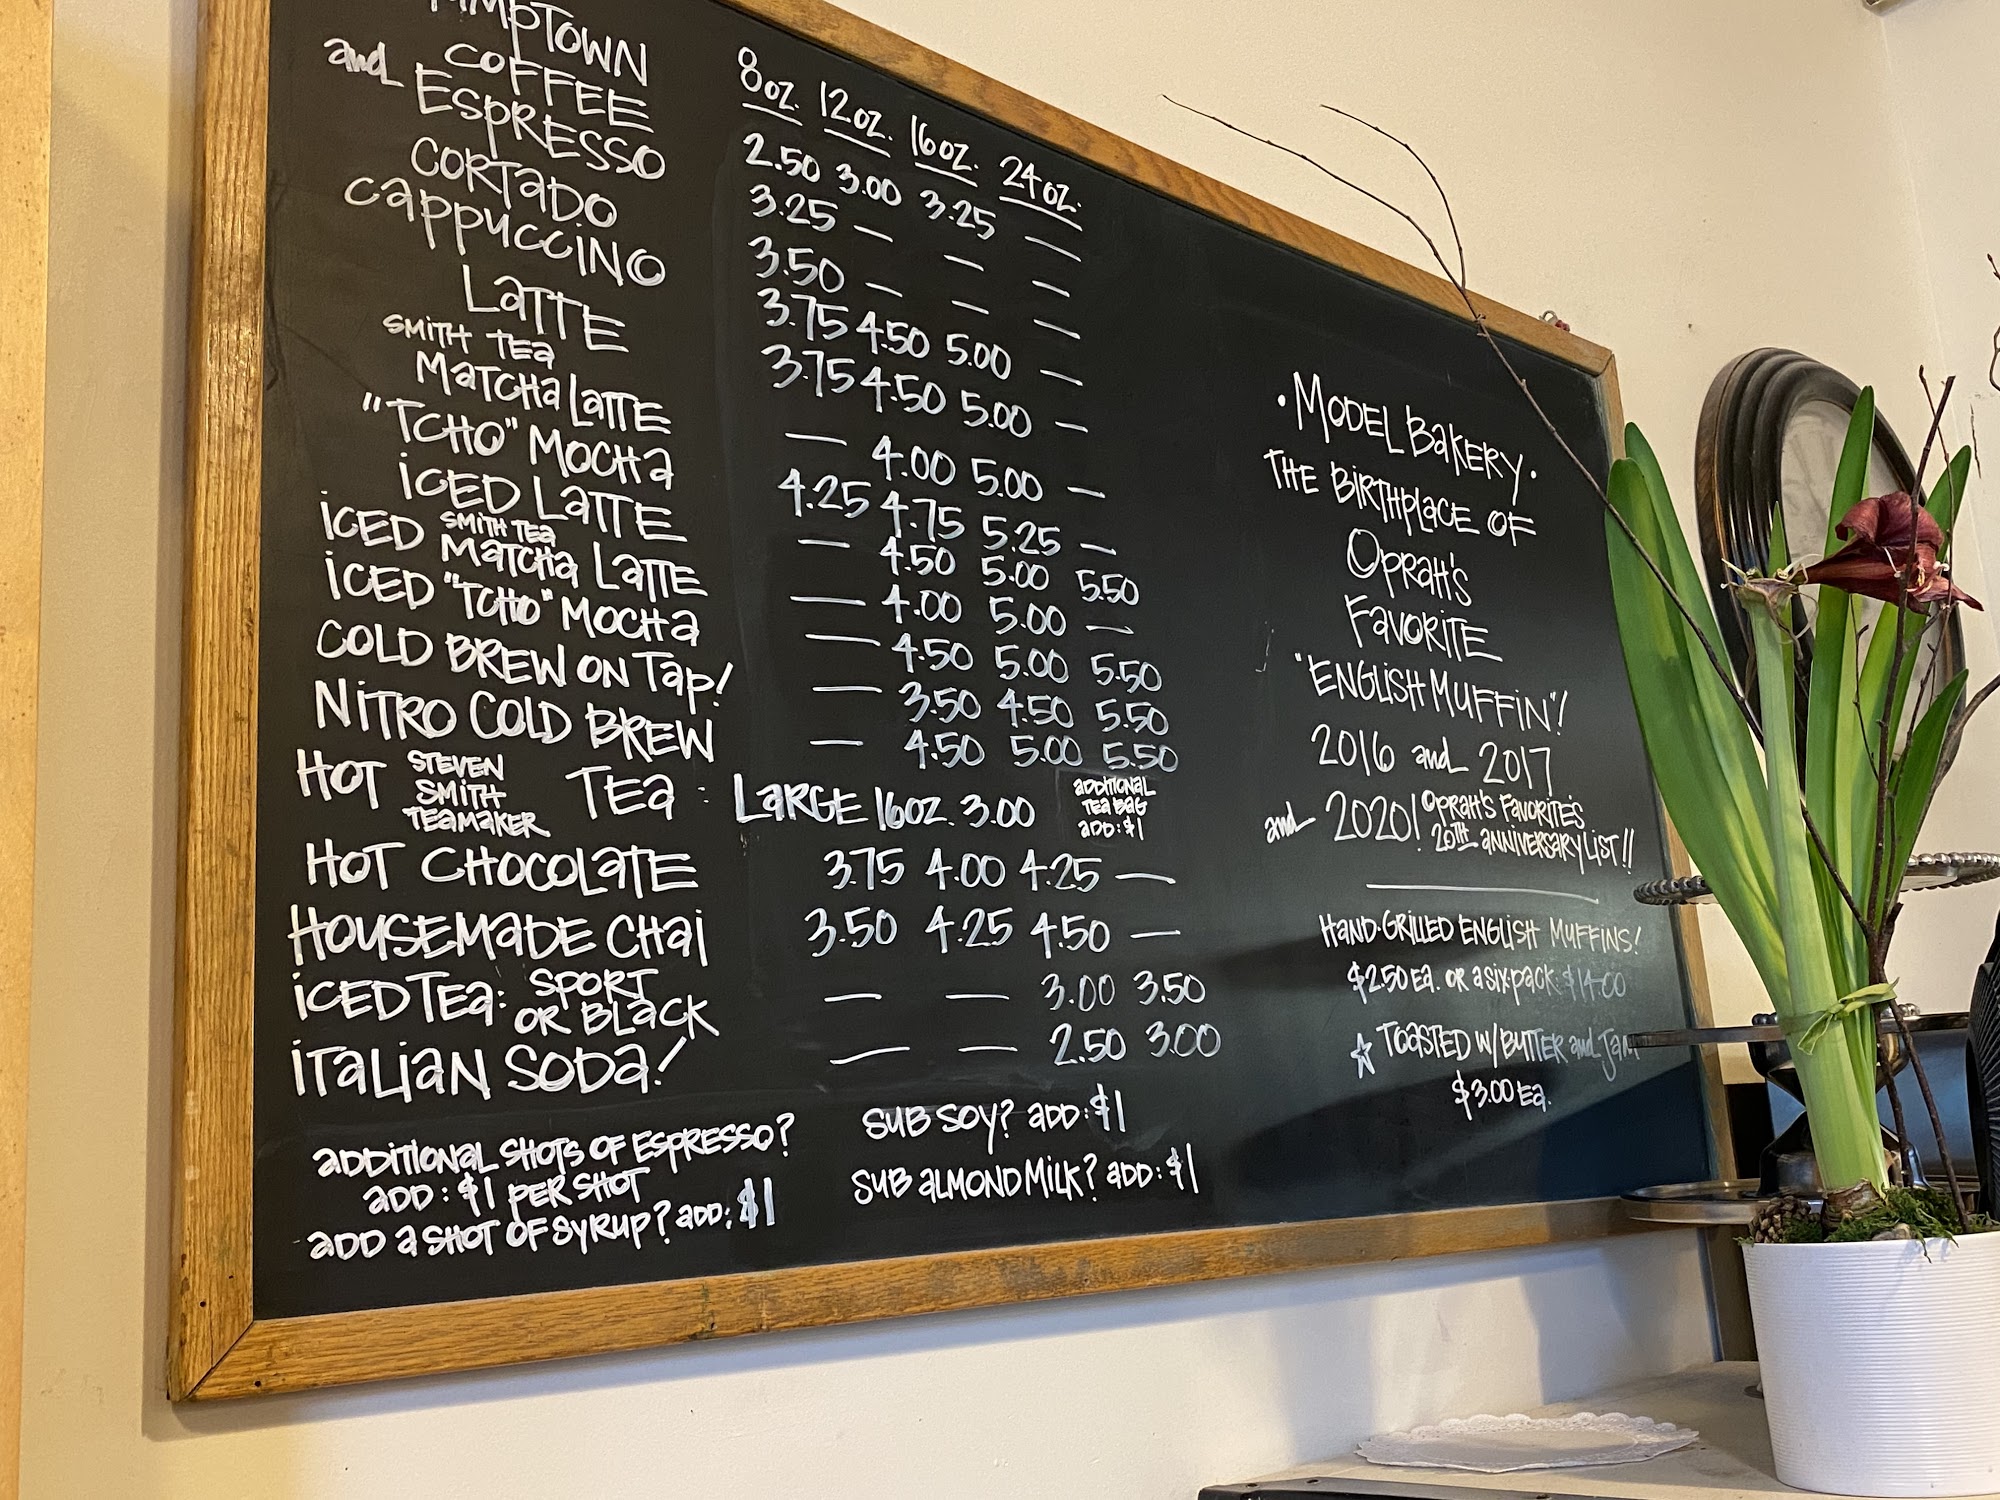 8oz. 12oz. 16oz. 24oz.
COFFEE 2.50 3.00 3.25 —
and ESPRESSO 3.25 — — —
CORTADO 3.50 — — —
CAPPUCCINO 3.75 4.50 5.00 —
LATTE 3.75 4.50 5.00 —
SMITH TEA
MATCHA LATTE — 4.00 5.00 —
"TCHO" MOCHA 4.25 4.75 5.25 —
ICED LATTE — 4.50 5.00 5.50
ICED SMITH TEA MATCHA LATTE — 4.00 5.00 —
ICED "TCHO" MOCHA — 4.50 5.00 5.50
COLD BREW ON TAP! — 3.50 4.50 5.50
NITRO COLD BREW — 4.50 5.00 5.50
HOT STEVEN SMITH TEAMAKER TEA: LARGE 16oz. 3.00 ADDITIONAL TEA BAG ADD: $1
HOT CHOCOLATE 3.75 4.00 4.25 —
HOUSEMADE CHAI 3.50 4.25 4.50 —
ICED TEA: SPORT OR BLACK — — 3.00 3.50
ITALIAN SODA! — — 2.50 3.00
ADDITIONAL SHOTS OF ESPRESSO?
ADD: $1 PER SHOT
ADD A SHOT OF SYRUP? ADD: $1
SUB SOY? ADD: $1
SUB ALMOND MILK? ADD: $1
• MODEL BAKERY •
THE BIRTHPLACE OF
OPRAH'S
FAVORITE
"ENGLISH MUFFIN"!
2016 and 2017
and 2020! OPRAH'S FAVORITE'S
20TH ANNIVERSARY LIST!!
HAND-GRILLED ENGLISH MUFFINS!
$2.50 EA. OR A SIX-PACK $14.00
☆ TOASTED W/ BUTTER and JAM
$3.00 EA.